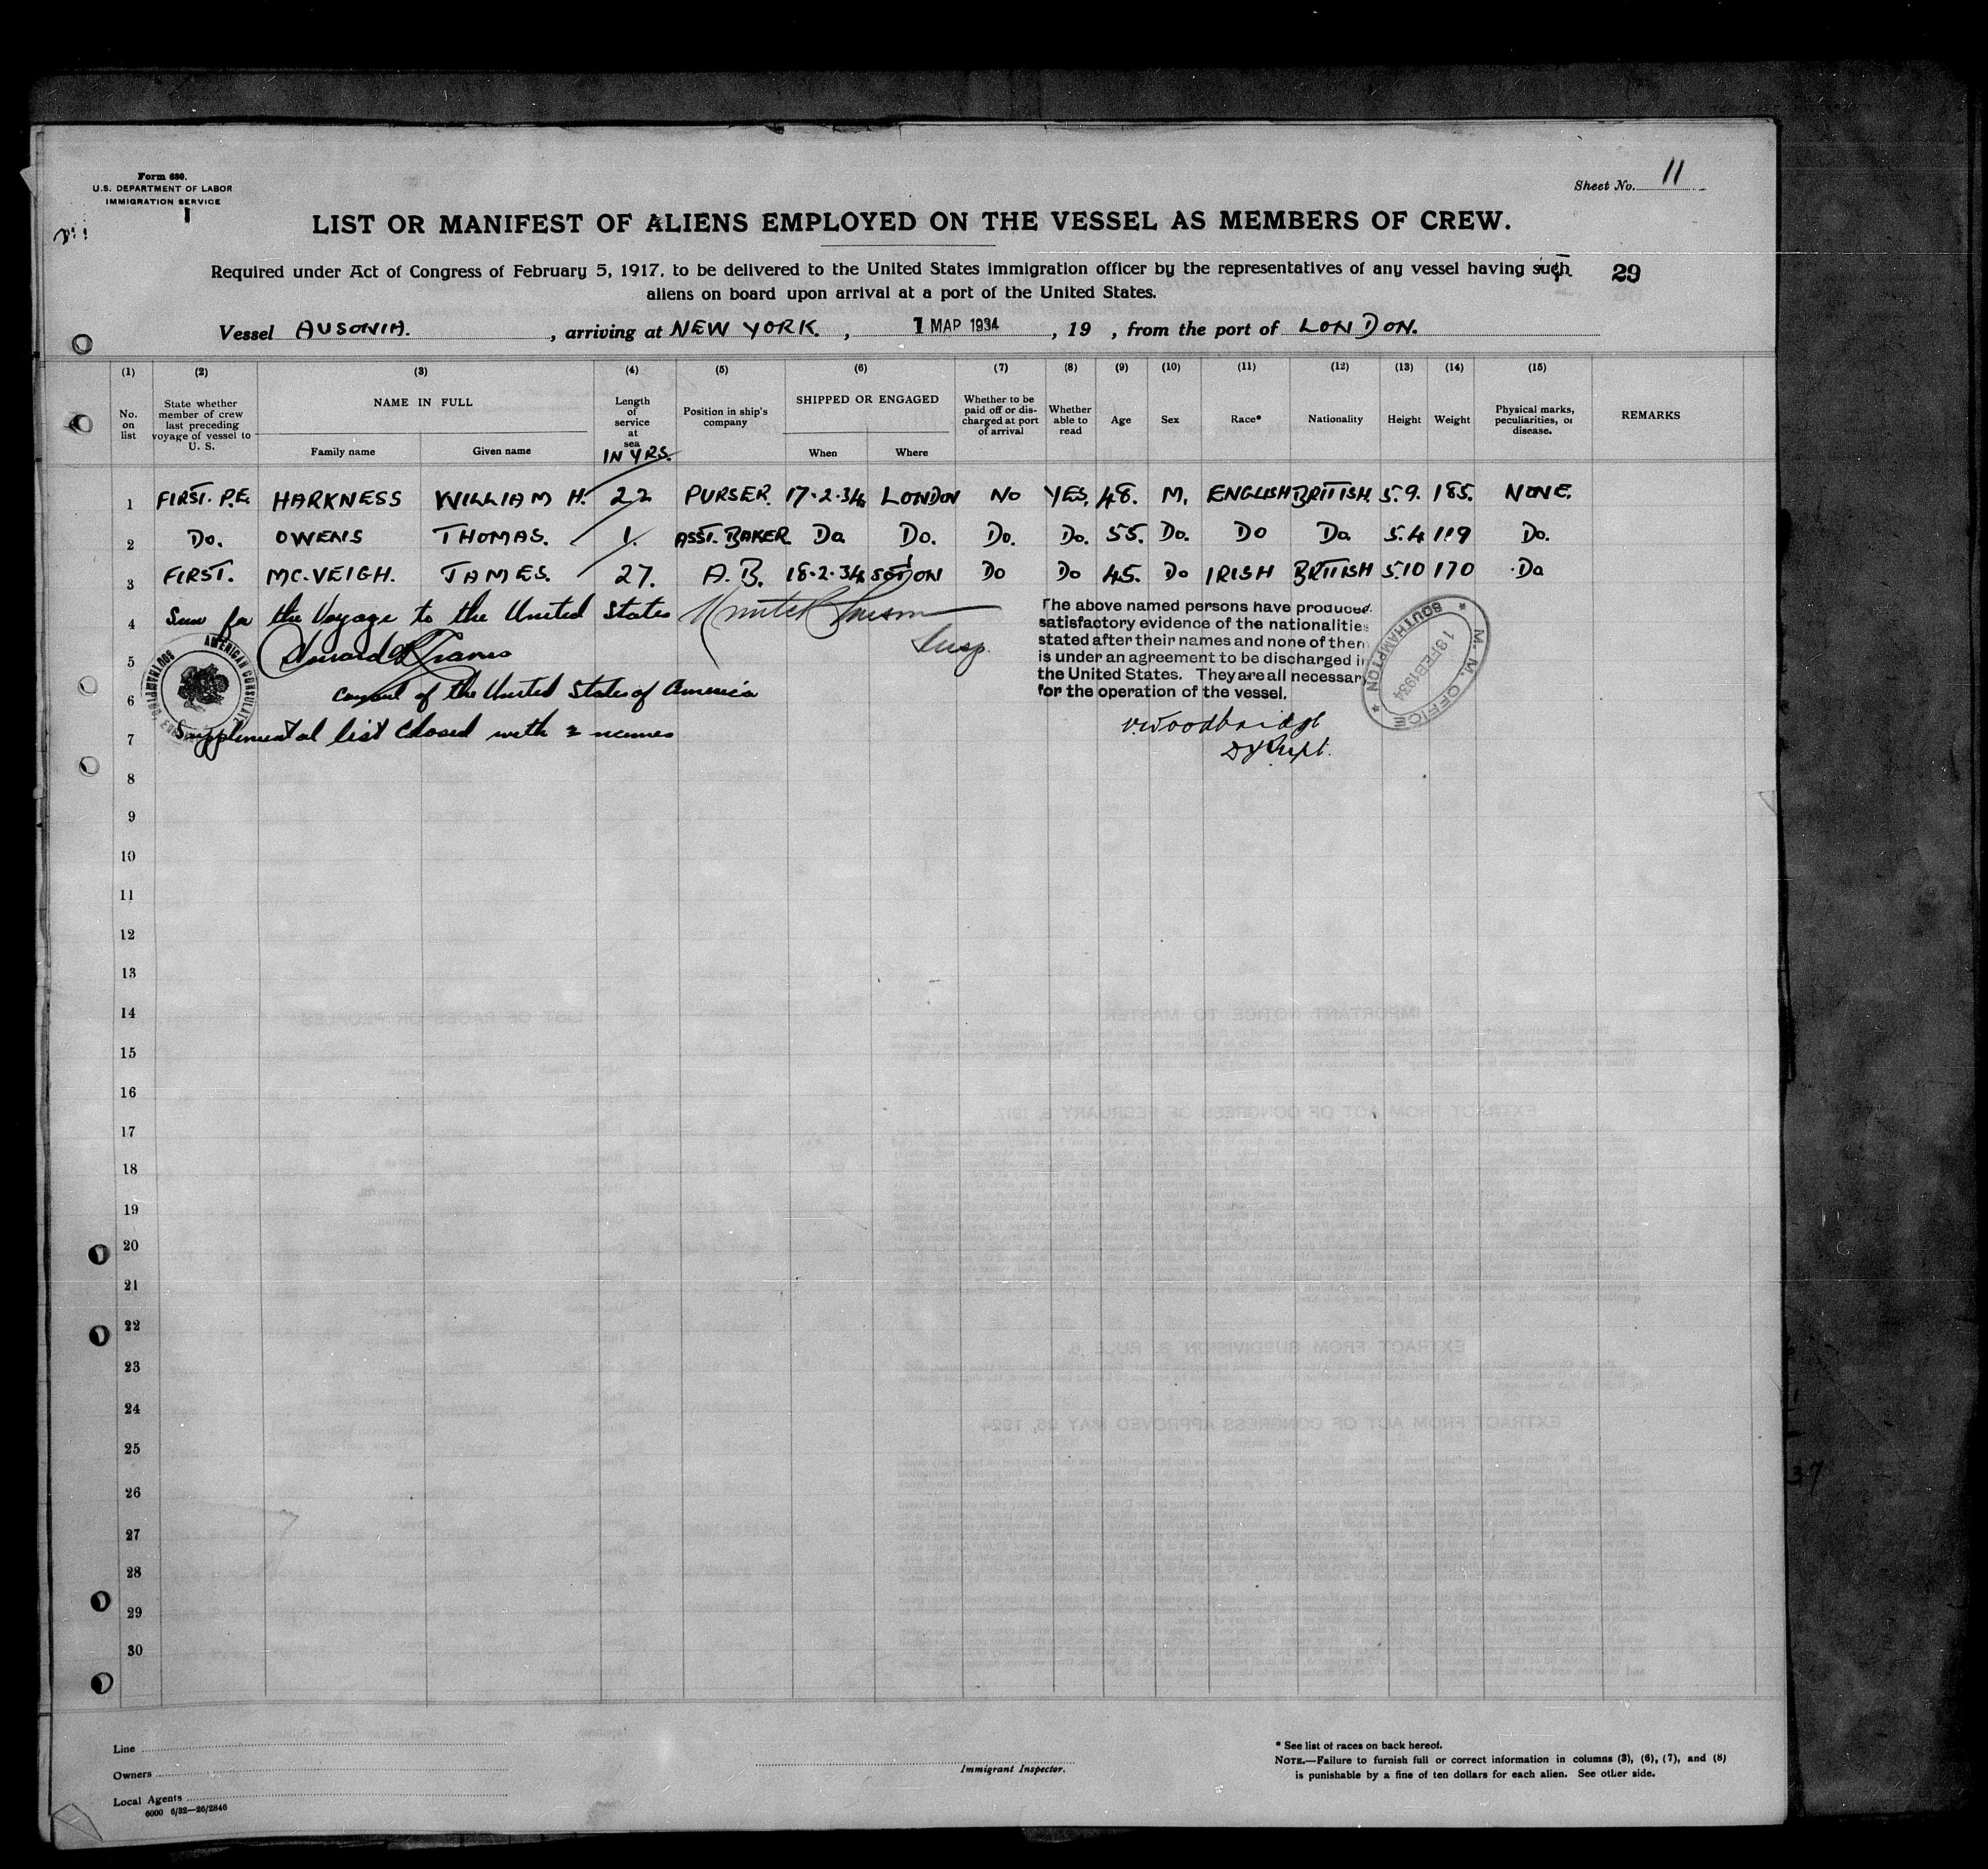 Form 680.
U.S. DEPARTMENT OF LABOR
IMMIGRATION SERVICE
Sheet No. 11
LIST OR MANIFEST OF ALIENS EMPLOYED ON THE VESSEL AS MEMBERS OF CREW.
Required under Act of Congress of February 5, 1917, to be delivered to the United States immigration officer by the representatives of any vessel having such
29
aliens on board upon arrival at a port of the United States.
Vessel AUSONIA. , arriving at NEW YORK. , 1 MAR 1934 , 19 , from the port of LONDON.
(1) (2) (3) (4) (5) (6) (7) (8) (9) (10) (11) (12) (13) (14) (15)
No. on list
State whether member of crew last preceding voyage of vessel to U. S.
NAME IN FULL
Family name Given name
Length of service at sea IN YRS.
Position in ship's company
SHIPPED OR ENGAGED
When Where
Whether to be paid off or discharged at port of arrival
Whether able to read
Age
Sex
Race*
Nationality
Height
Weight
Physical marks, peculiarities, or disease.
REMARKS
1 FIRST. P.E. HARKNESS WILLIAM H. 22 PURSER. 17.2.34 LONDON NO YES. 48. M. ENGLISH BRITISH. 5.9. 185. NONE.
2 DO. OWENS THOMAS. 1. ASST. BAKER Do Do. Do. Do. 55. Do. Do Do 5.4 119 Do.
3 FIRST. MC.VEIGH. JAMES. 27. A.B. 18.2.34 SOTON Do Do 45. Do IRISH BRITISH 5.10 170 Do
4 Seen for the Voyage to the United States
5
6 Consul of the United States of America
7 Supplemental list closed with 2 names
AMERICAN CONSULATE
SOUTHAMPTON,
Insp.
The above named persons have produced
satisfactory evidence of the nationalities
stated after their names and none of them
is under an agreement to be discharged in
the United States. They are all necessary
for the operation of the vessel.
V. Woodbridge
Dy Supt.
M. M. OFFICE
SOUTHAMPTON
FEB 1934
8
9
10
11
12
13
14
15
16
17
18
19
20
21
22
23
24
25
26
27
28
29
30
Line
Owners
Local Agents
6000 6/32—26/2846
Immigrant Inspector.
* See list of races on back hereof.
NOTE.—Failure to furnish full or correct information in columns (3), (6), (7), and (8)
is punishable by a fine of ten dollars for each alien. See other side.